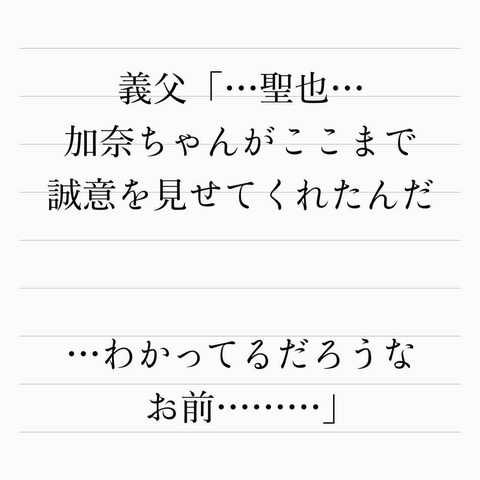 義父「…聖也…
加奈ちゃんがここまで
誠意を見せてくれたんだ
…わかってるだろうな
お前………」